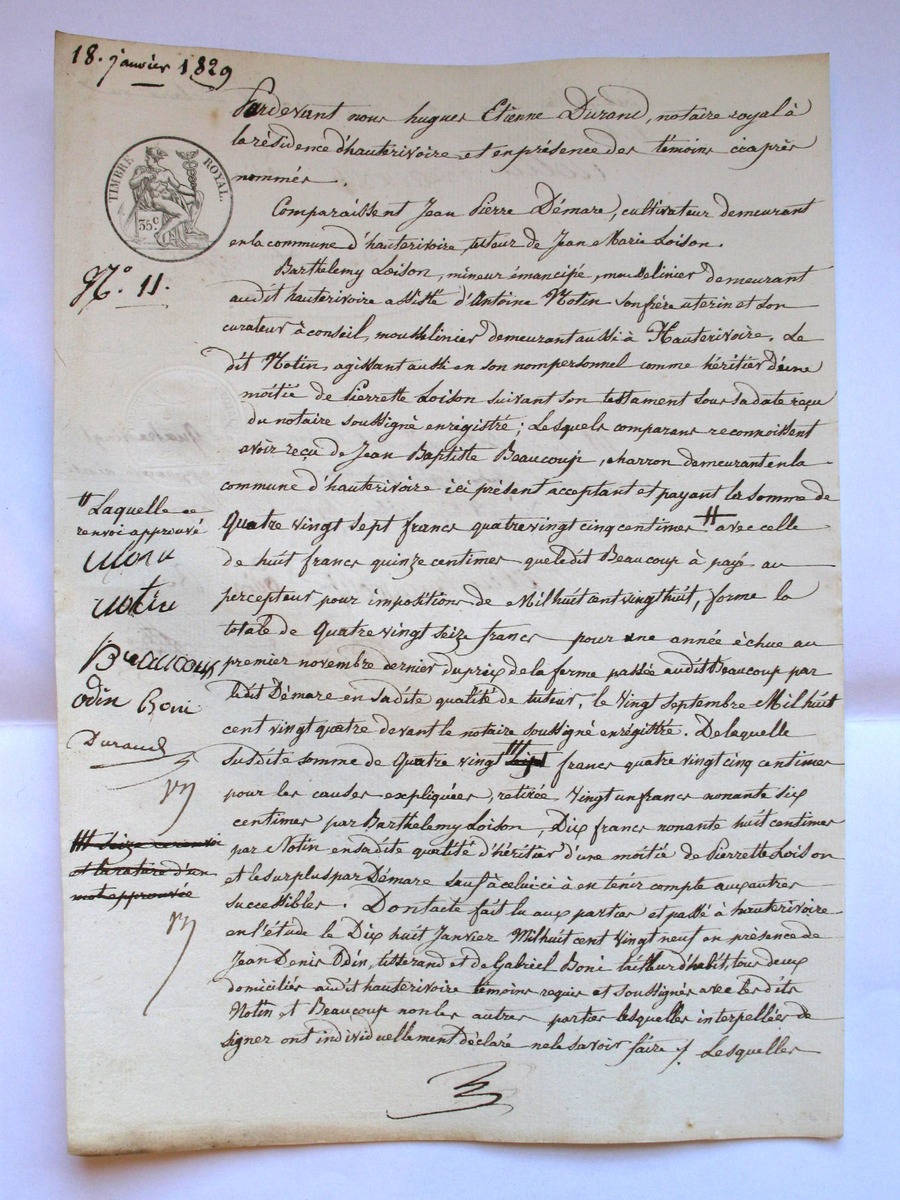 18. janvier 1829
TIMBRE ROYAL.
35 c.
N.o 11.
Pardevant nous hugues Etienne Durand, notaire royal à
la résidence d'hauterivoire et en présence des témoins ci après
nommés.
Comparaissent Jean Pierre Démare, cultivateur demeurant
en la commune d'hauterivoire tuteur de Jean Marie Loison.
Barthelemy Loison, mineur émancipé, mousselinier demeurant
audit hauterivoire assisté d'Antoine Notin son frère uterin et son
curateur à conseil, mousslinier demeurant aussi à Hauterivoire. Le
dit Notin, agissant aussi en son nom personnel comme héritier d'une
moitié de Pierrette Loison suivant son testament sous sa date reçu
du notaire soussigné enregistré ; Lesquels comparans reconnoissent
avoir reçu de Jean Baptiste Beaucoup, charron demeurant en la
commune d'hauterivoire ici présent acceptant et payant la somme de
Quatre vingt sept francs quatre vingt cinq centimes # avec celle
de huit francs quinze centimes que ledit Beaucoup à payé au
percepteur pour impositions de Mil huit cent vingt huit, forme la
totale de Quatre vingt seize francs pour une année échue au
premier novembre dernier du prix de la ferme passée audit Beaucoup par
ledit Démare en sadite qualité de tuteur, le vingt septembre Mil huit
cent vingt quatre devant le notaire soussigné enrégistré. De laquelle
susdite somme de Quatre vingt sept francs quatre vingt cinq centimes
pour les causes expliquées, retirée vingt un francs nonante six
centimes par Barthelemy Loison, Dix francs nonante huit centimes
par Notin en sadite qualité d'héritier d'une moitié de Pierrette Loison
et le surplus par Démare sauf à celui ci à en tenir compte aux autres
successibles. Dont acte fait lu aux parties et passé à hauterivoire
en l'étude le Dix huit Janvier Mil huit cent vingt neuf en présence de
Jean Denis Odin, tisserand et de Gabriel Boni tailleur d'habit, tous deux
domiciliés audit hauterivoire témoins requis et soussignés avec lesdits
Notin et Beaucoup non les autres parties lesquelles interpellées de
signer ont individuellement déclaré ne le savoir faire /. Lesquelles
# Laquelle ce
renvoi approuvé
notin
Beaucoup
odin Boni
Durand
## Seize ce renvoi
et la rature d'un
mot approuvée